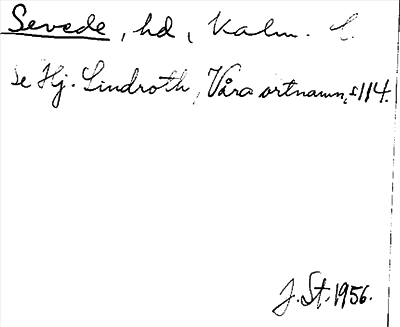 Sevede, hd, Kalm. L.
se Hj. Lindroth, Våra ortnamn, s 114.
J. St. 1956.